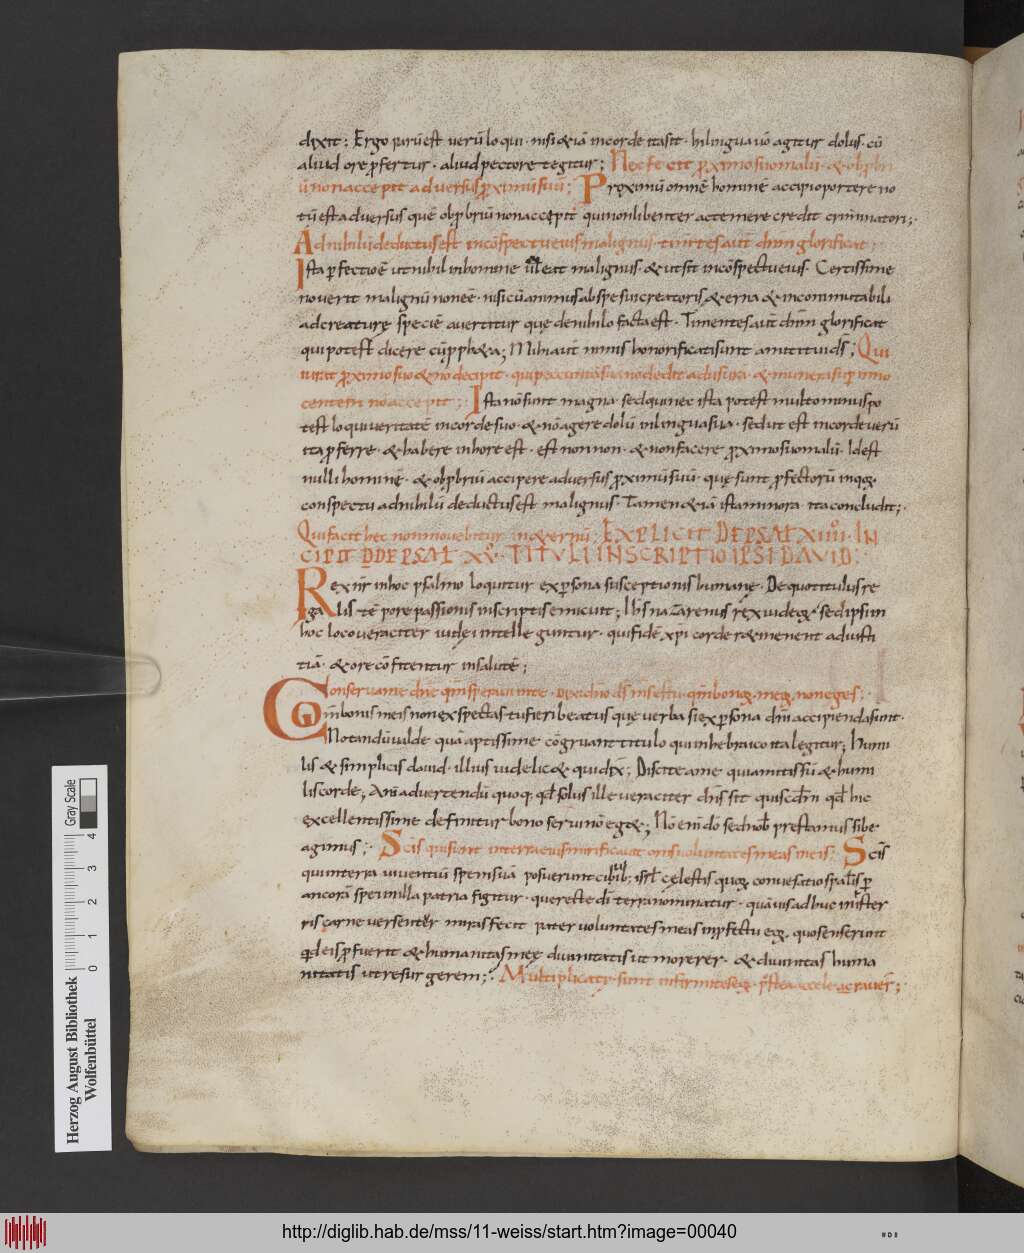 dixit; Ergo parū est uerū loqui. nisi & iā in corde ita sit. In lingua uō agitur dolus. cū
aliud ore ꝓfertur. aliud pectore tegitur; Nec fecit ꝓximo suo malū. & obꝓbri
ū non accepit aduersus ꝓximū suū; Proximū omnē hominē accipi oportere no
tū est aduersus quē obꝓbriū non accepit qui non libenter a temere credit criminatori;
Ad nihilū deductus est in cōspectu eius malignus. timentes autē dn̄m glorificat;
Ista ꝓfectioē ut nihil in homine ualeat malignus. & ut sit in cōspectu eius. Certissime
nouerit malignū non eē. nisi cū animus ab specie sui creatoris & erna & incommutabili
ad creaturę speciē auertitur quę de nihilo facta est. Timentes aut dn̄m glorificat
qui potest dicere cū ꝓph&a; Mihi aut nimis honorificati sunt amici tui d̄s; Qui
iurat ꝓximo suo & nō decipit. qui pecuniā suā non dedit ad usurā. & munera suꝑ inno
centem nō accepit; Ista nō sunt magna. sed qui nec ista potest multo minus po
test loqui ueritatē in corde suo. & nō agere dolū in lingua sua. sed ut est in corde uerū
ita ꝓferre. & habere in hore est. est non non. & non facere ꝓximo suo malū. Id est
nulli hominē. & obꝓbriū accipere aduersus ꝓximū suū. quę sunt ꝓfectorū in quoꝝ
conspectu ad nihilū deductus est malignus. Tamen & iā ista minora ita concludit;
Qui facit hęc non mouebitur in &ernū; EXPLICIT DE PSAL XIIII. IN
CIPIT DE PSAL XV. TITULI INSCRIPTIO IPSI DAUID;
Rex nr̄ in hoc psalmo loquitur ex ꝑsona susceptionis humanę. De quo titulus re
galis tēpore passionis inscriptis emicuit; Ihs̄ nazarenus rex iudeoꝝ sed ipsi in
hoc loco ueraciter iudęi intelleguntur. qui fidē xp̄i corde r&inent ad iusti
tiā. & ore cōfitentur in salutē;
Conserua me dn̄e qm̄ speraui in te. dixi dn̄o d̄s m̄s es tu. qm̄ bonoꝝ meoꝝ non eges;
Qm̄ bonis meis non exspectas tu fieri beatus quę uerba si ex ꝑsona dn̄i accipienda sunt.
Notandū ualde quā aptissime cōgruant titulo qui in hebraico ita legitur; humi
lis & simplicis dauid. illius uidelic& qui dix̄; Discite a me quia mitis sū & humi
lis corde; Aut aduertendū quoq; qd̄ solus ille ueraciter dn̄s sit quisc̄ dn̄i qd̄ hic
excellentissime definitur bono seruı nō eg&; Nō enī dō sed nob̄ prestamus si be
agimus; Scīs qui sunt in terra eius mirificauit om̄s uoluntates meas in eis; Scīs
qui in terra uiuentiū spem suā posuerunt ciuib;. isrł cęlestis quoꝝ conuersatio spalis ꝑ
ancorā spei in illa patria figitur. quę recte d̄i terra nominatur. quāuis adhuc in istis ter
ris carne uersentur miras fecit pater uoluntates meas in ꝓfectu eoꝝ. quo senserunt
qd eis ꝓfuerit & humanitas meę diuinitatis ut morerer. & diuinitas huma
nitatis ut resurgerem; Multiplicatę sunt infirmitates eoꝝ. postea accelerauer̄;
Herzog August Bibliothek
Wolfenbüttel
0 1 2 3 4
Gray Scale
http://diglib.hab.de/mss/11-weiss/start.htm?image=00040